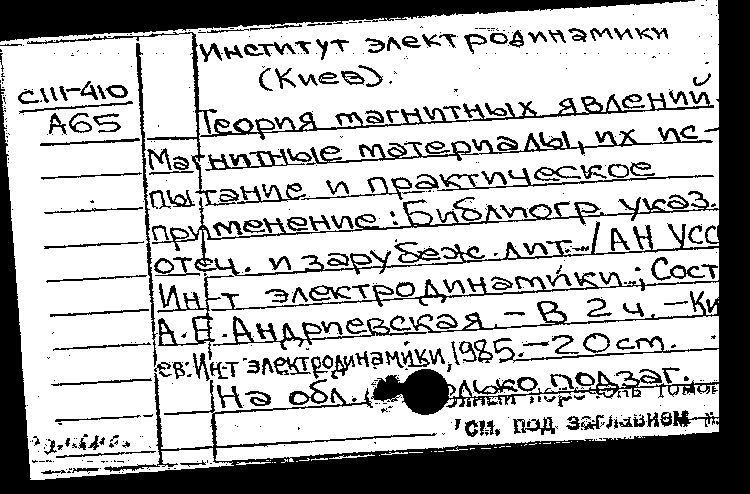 Институт электродинамики
(Киев).
СIII-410
А65
Теория магнитных явлений.
Магнитные материалы, их ис-
пытание и практическое
применение: Библиогр. указ.
отеч. и зарубеж. лит.../АН УССР
Ин-т электродинамики.; Сост.
А.Е. Андриевская. - В 2 ч. - Ки-
ев: Ин-т электродинамики, 1985. - 20 см.
На обл. только подзаг.
перечень томов
см. под заглавием